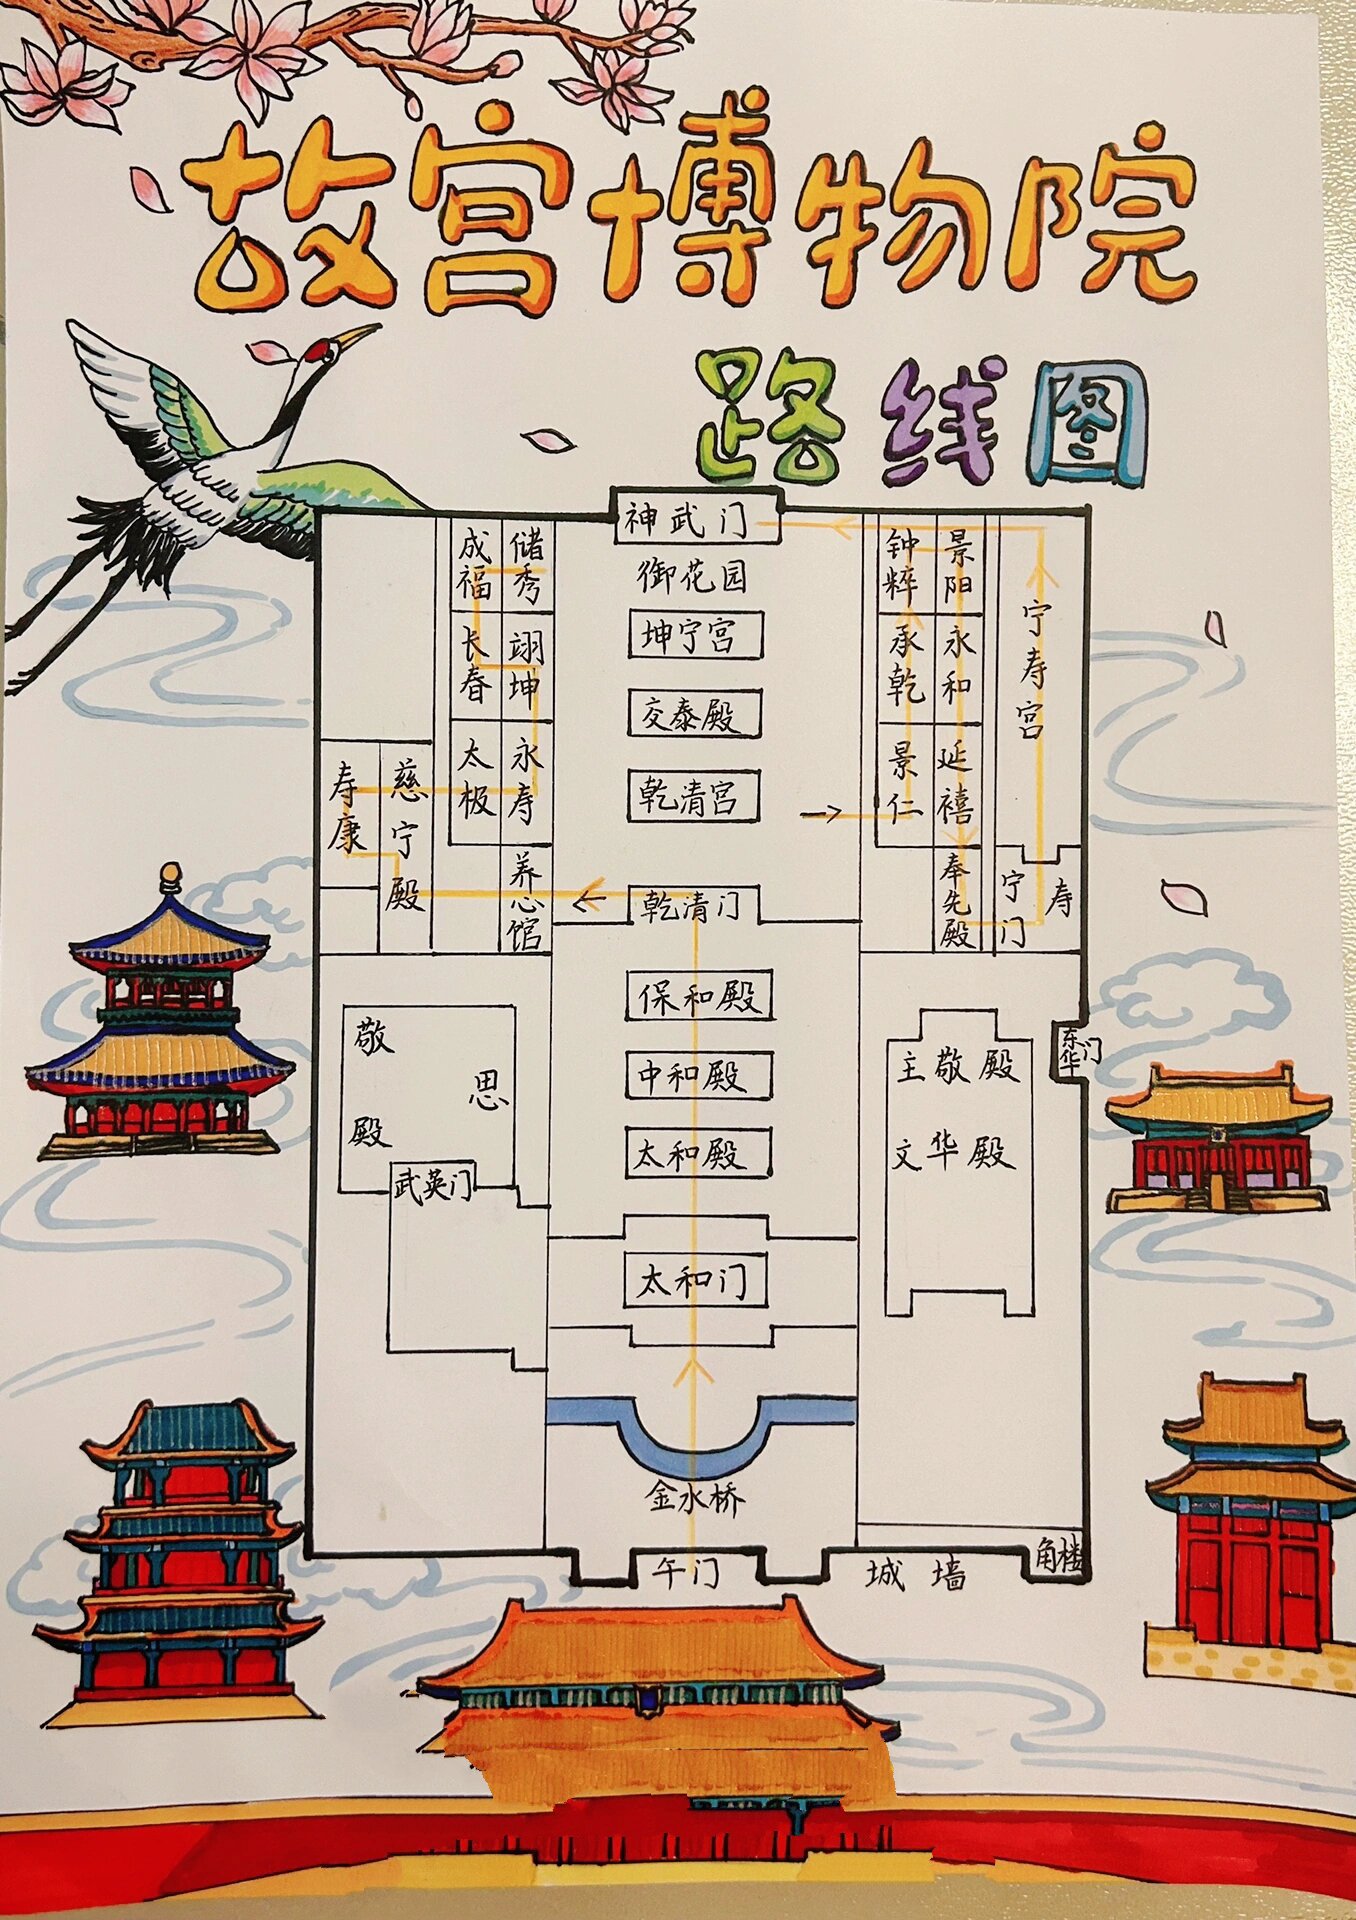 故宫博物院
路线图
神武门
御花园
坤宁宫
交泰殿
乾清宫
乾清门
保和殿
中和殿
太和殿
太和门
金水桥
午门
成福
储秀
长春
翊坤
太极
永寿
养心馆
寿康
慈宁殿
钟粹
景阳
承乾
永和
景仁
延禧
奉先殿
宁寿宫
宁寿门
敬思殿
武英门
主敬殿
文华殿
东华门
城墙
角楼